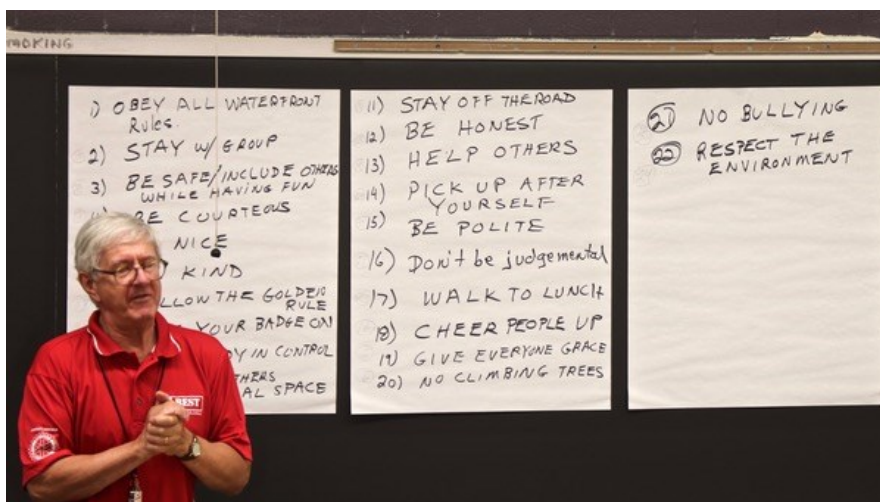 MOKING
1) OBEY ALL WATERFRONT
Rules.
2) STAY W/ GROUP
3) BE SAFE/INCLUDE OTHERS
WHILE HAVING FUN
BE COURTEOUS
NICE
KIND
LLOW THE GOLDEN
RULE
YOUR BADGE ON
DY IN CONTROL
THERS
AL SPACE
11) STAY OFF THE ROAD
12) BE HONEST
13) HELP OTHERS
14) PICK UP AFTER
YOURSELF
15) BE POLITE
16) Don't be judgemental
17) WALK TO LUNCH
18) CHEER PEOPLE UP
19) GIVE EVERYONE GRACE
20) NO CLIMBING TREES
21) NO BULLYING
22) RESPECT THE
ENVIRONMENT
BEST